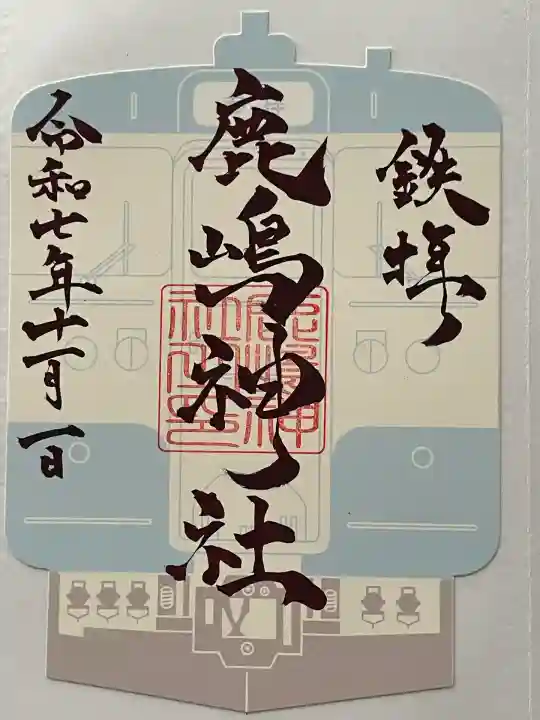 鉄拝
鹿嶋神社
令和七年十一月一日
鹿嶋神社之印